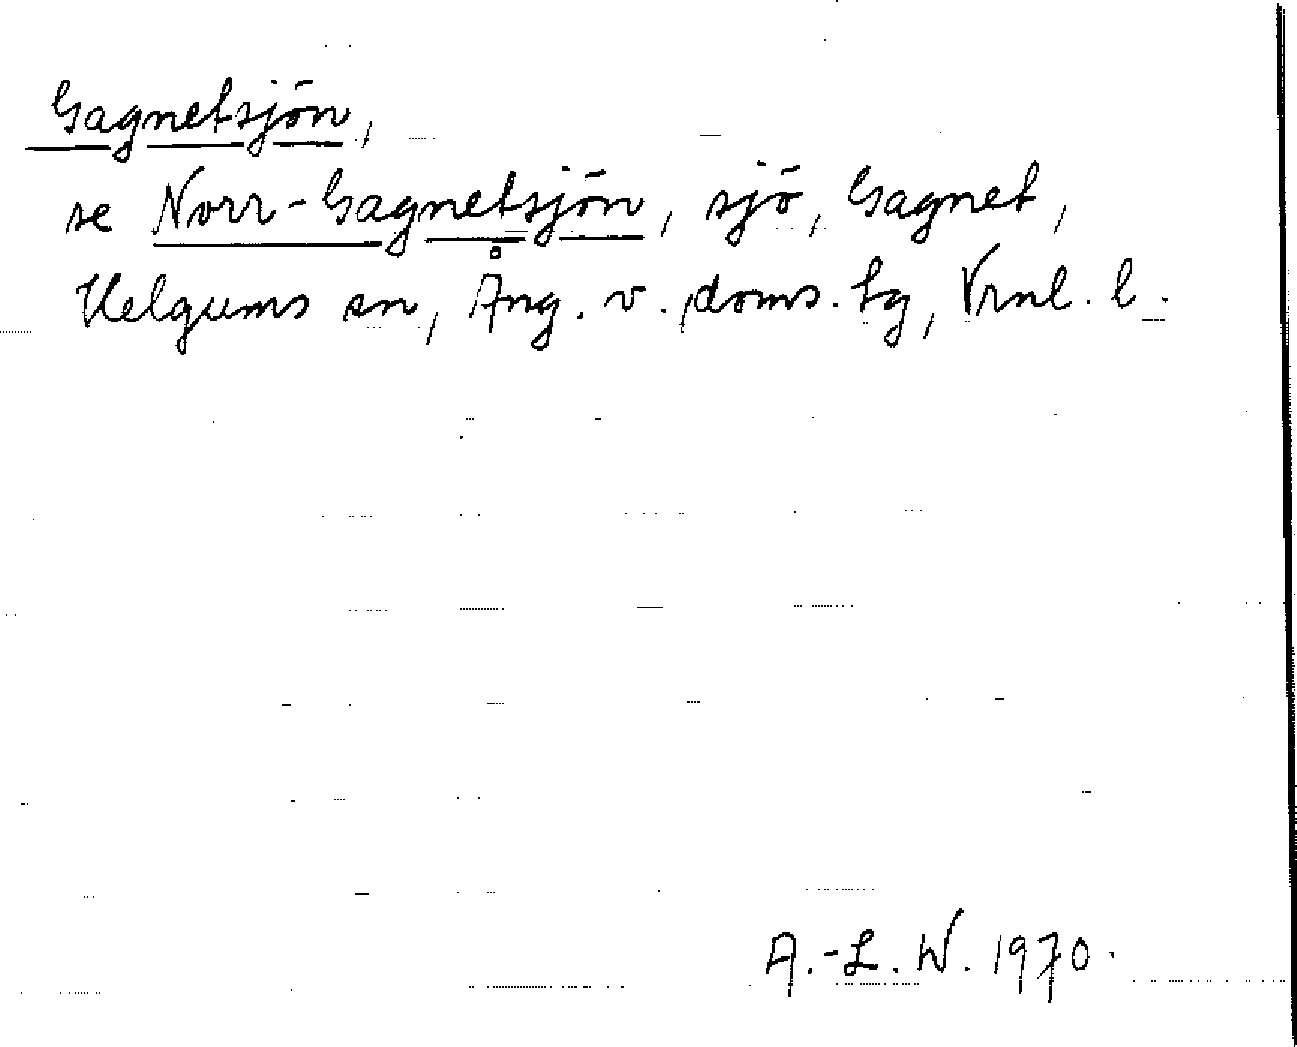 Gagnetsjön,
se Norr-Gagnetsjön, sjö, Gagnet,
Helgums sn, Ång. v. doms. tg, Vrnl. l.
A.-L. W. 1970.